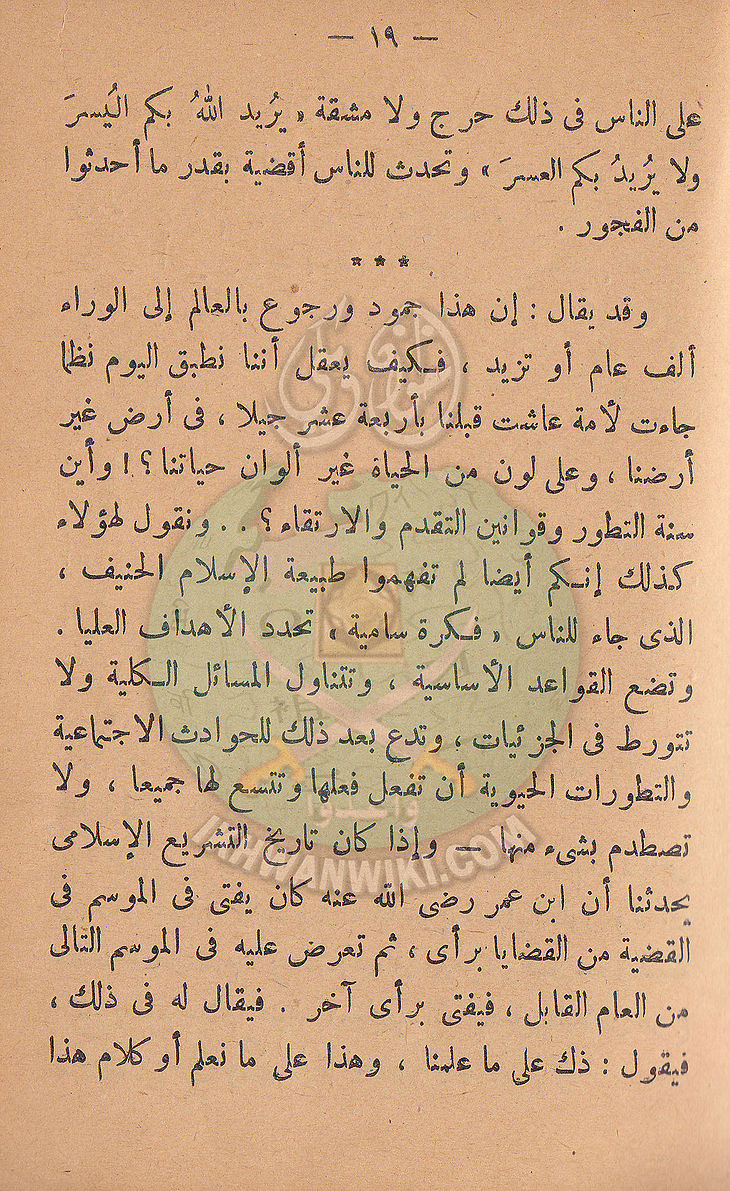 — ١٩ —
على الناس فى ذلك حرج ولا مشقة « يُريد اللهُ بكم اليُسرَ
ولا يُريدُ بكم العسرَ » وتحدث للناس أقضية بقدر ما أحدثوا
من الفجور .
* * *
وقد يقال : إن هذا جمود ورجوع بالعالم إلى الوراء
ألف عام أو تزيد ، فكيف يعقل أننا نطبق اليوم نظما
جاءت لأمة عاشت قبلنا بأربعة عشر جيلا ، فى أرض غير
أرضنا ، وعلى لون من الحياة غير ألوان حياتنا ؟ ! وأين
سنة التطور وقوانين التقدم والارتقاء ؟ . . ونقول لهؤلاء
كذلك إنكم أيضا لم تفهموا طبيعة الإسلام الحنيف ،
الذى جاء للناس « فكرة سامية » تحدد الأهداف العليا .
وتضع القواعد الأساسية ، وتتناول المسائل الكلية ولا
تتورط فى الجزئيات ، وتدع بعد ذلك للحوادث الاجتماعية
والتطورات الحيوية أن تفعل فعلها وتتسع لها جميعا ، ولا
تصطدم بشىء منها — وإذا كان تاريخ التشريع الإسلامى
يحدثنا أن ابن عمر رضى الله عنه كان يفتى فى الموسم فى
القضية من القضايا برأى ، ثم تعرض عليه فى الموسم التالى
من العام القابل ، فيفتى برأى آخر . فيقال له فى ذلك ،
فيقول : ذك على ما علمنا ، وهذا على ما نعلم أو كلام هذا
IKHWANWIKI.COM
وأعدوا